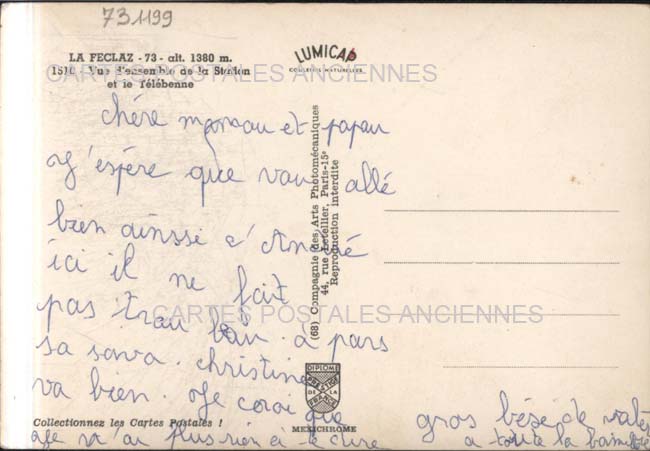 731199
LA FECLAZ - 73 - alt. 1380 m.
1510 Vue d'ensemble de la Station
et le Télébenne
LUMICAP
COULEURS NATURELLES
CARTES POSTALES ANCIENNES
chére maman et papau
J'espére que vau allé
bien ainssi c' André
ici il ne fait
pas trau bau. à pars
sa sava. christine
va bien. Je corai que
Je n'ai plus rien à te dire
gros bése de
a toute la
CARTES POSTALES ANCIENNES
(68) Compagnie des Arts Photomécaniques
44, rue Letellier, Paris-15e
Reproduction interdite
DIPLOME
PRESTIGE
DE LA
FRANCE
MEXICHROME
Collectionnez les Cartes Postales !